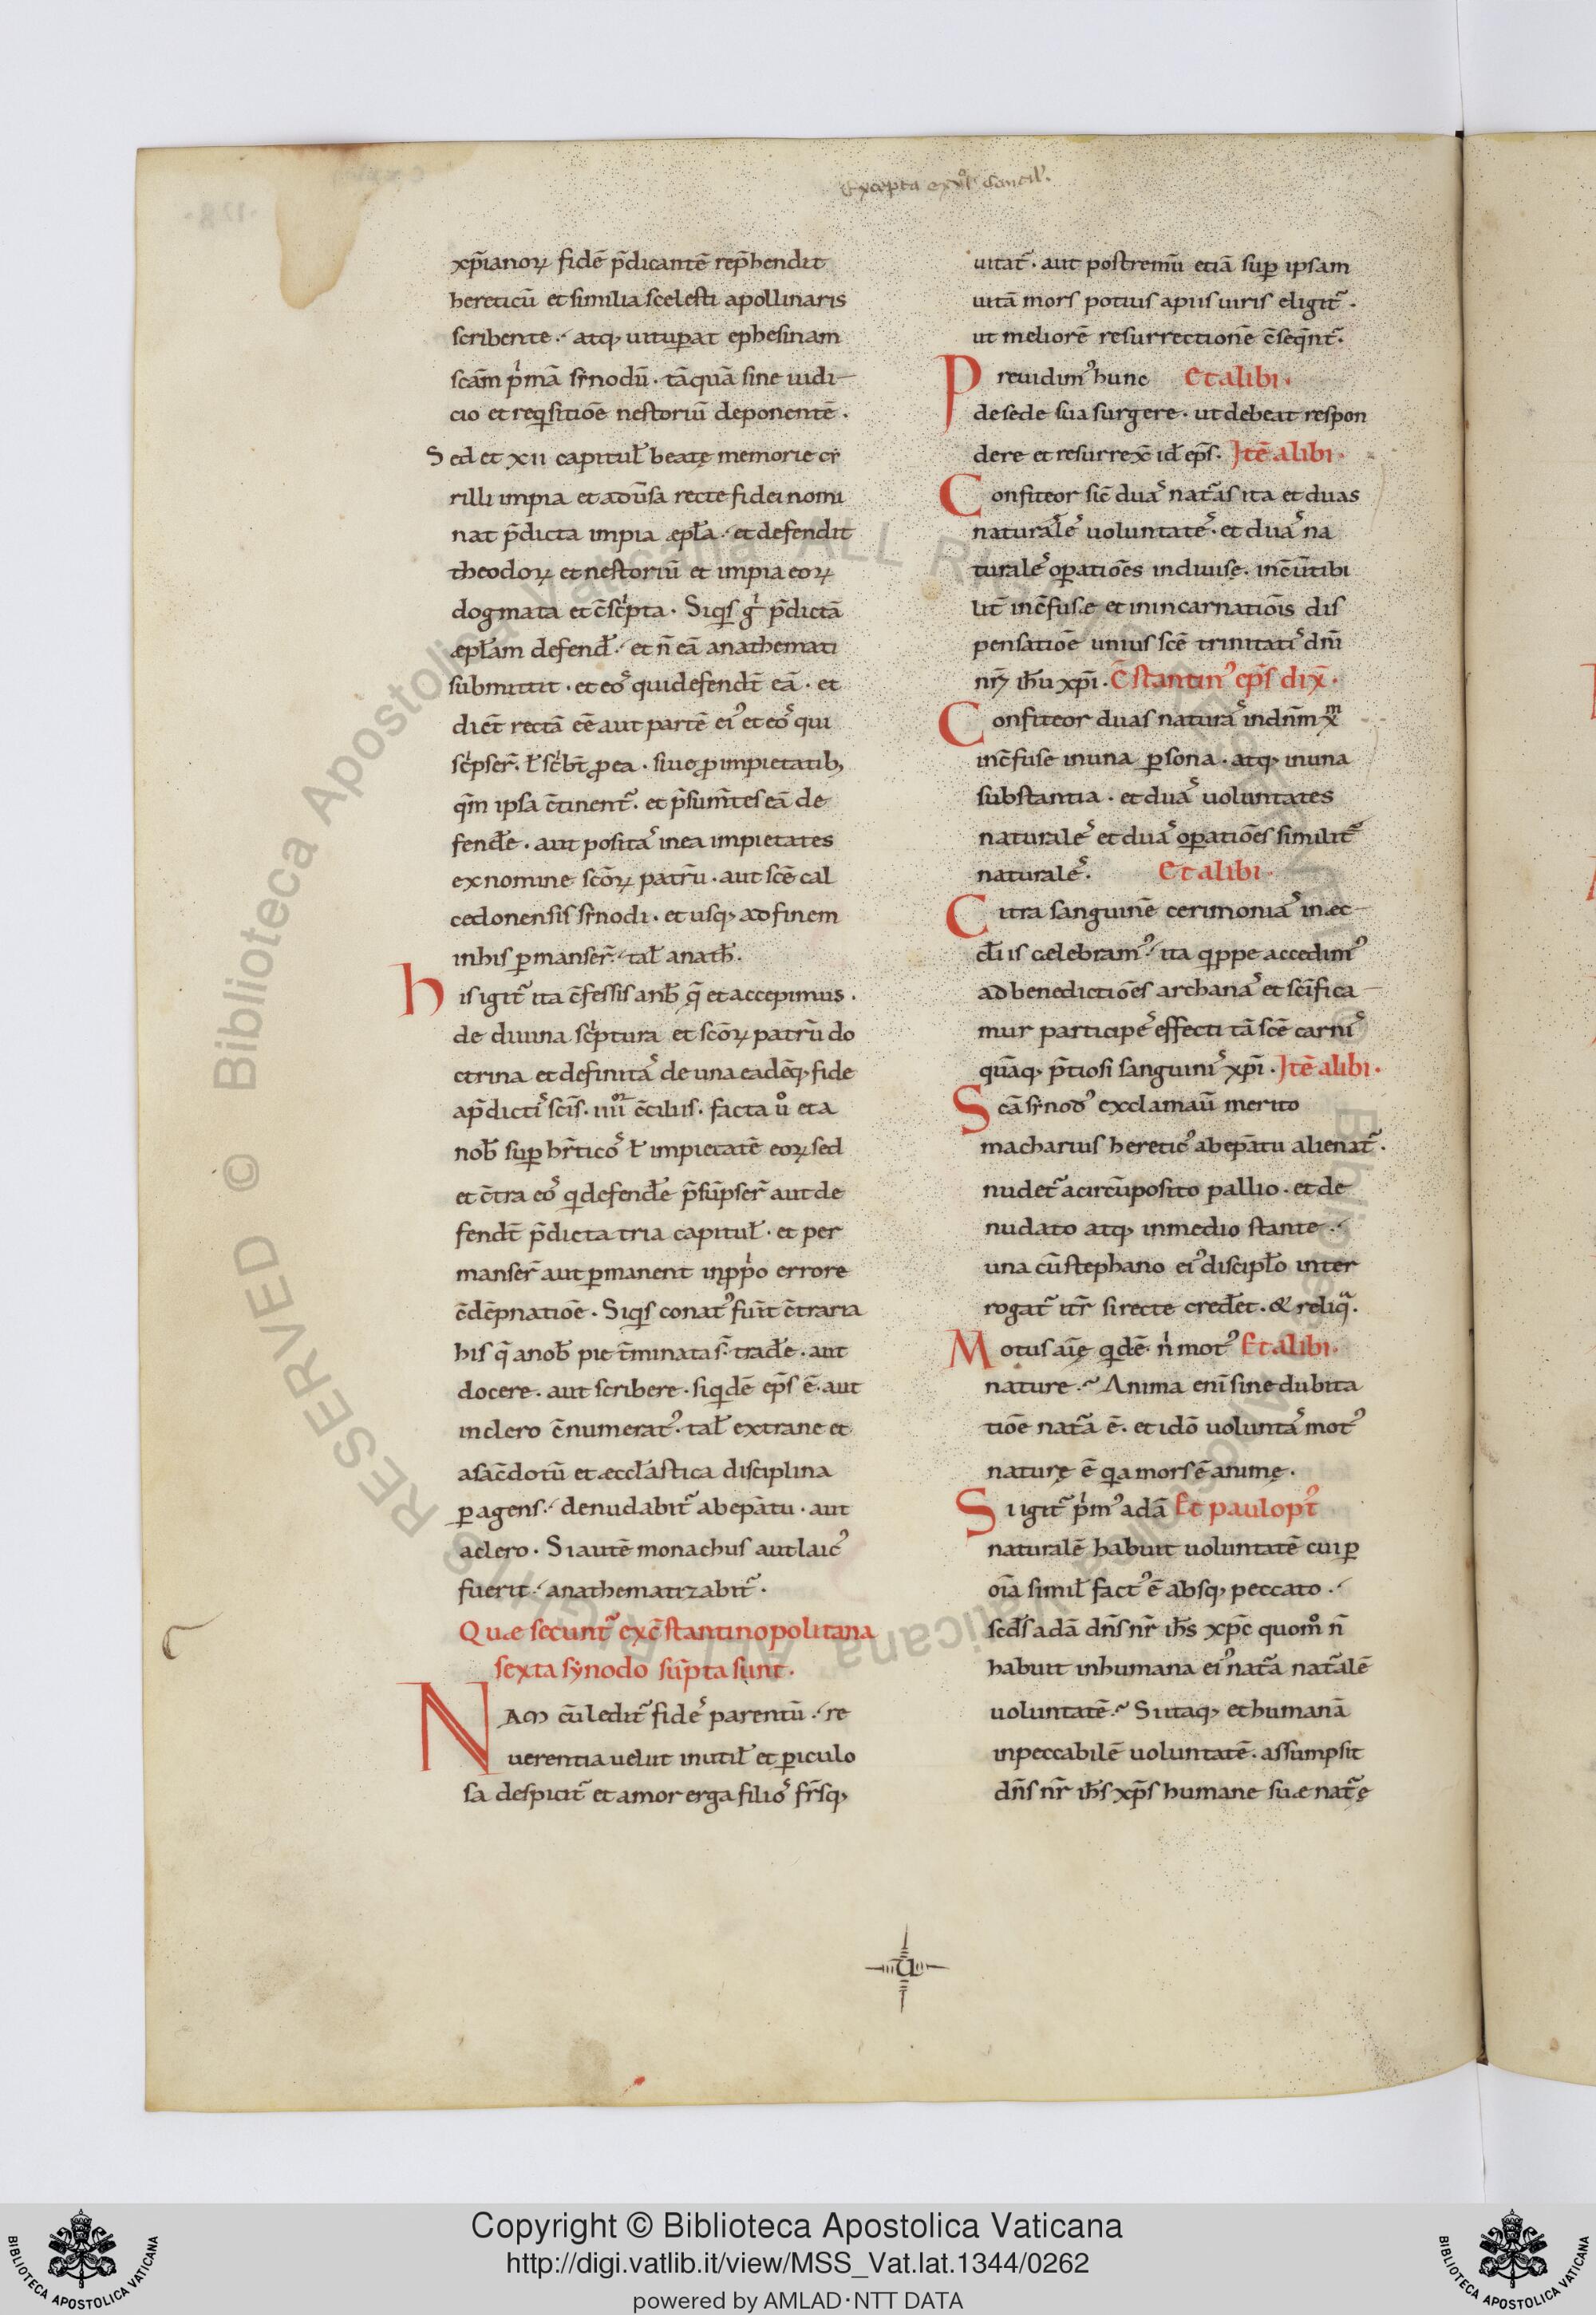 Excerpta ex vi concil.
xp̄ianoꝝ fidē p̄dicantē rep̄hendit
hereticū et similia scelesti apollinaris
scribente. atq; uituꝑat ephesinam
sc̄am pͥmā sẏnodū. tāquā sine iudi
cio et reqͥsitiōe nestoriū deponentē.
Sed et xii capitul̄ beatę memorie cẏ
rilli impia et aduͤsa recte fidei nomi
nat p̄dicta impia æpl̄a. et defendit
theodoꝝ et nestoriū et impia eoꝝ
dogmata et c̄scͥpta. Siqͥs gͥ p̄dictā
æpl̄am defend̄. et n̄ eā anathemati
submittit. et eoˢ qui defendt̄ eā. et
dict̄ rectā eē aut partē eiꝰ et eoˢ qui
scͥpser̄. l̄ scͥbt̄ ꝓ ea. siue ꝓ impietatib;
q̄m ipsa c̄tinent᷑. et p̄sum̄tes eā de
fend̄e. aut positaˢ in ea impietates
ex nomine sc̄oꝝ patrū. aut scē cal
cedonensis sẏnodi. et usq; ad finem
in his ꝑmanser̄. tal̄ anath̄.
his igit᷑ ita c̄fessis a nb̄ q̄ et accepimus.
de diuina scͥptura et sc̄oꝝ patrū do
ctrina et definitaˢ de una eadēq; fide
a p̄dictiˢ sc̄is. iiiiᵒʳ c̄ciliis. facta uͦ et a
nob̄ suꝑ hr̄ticoˢ l̄ impietatē eoꝝ sed
et c̄tra eoˢ qͥ defend̄e p̄sūpser̄ aut de
fendt̄ p̄dicta tria capitul̄. et per
manser̄ aut ꝑmanent in ꝓpͥo errore
c̄dēpnatiōe. Siqͥs conatꝰ fuīt c̄traria
his q̄ a nob̄ pie t̄minata s̄. trad̄e. aut
docere. aut scribere. siqͥdē ep̄s ē. aut
in clero c̄numeratꝰ. tal̄ extrane et
a sac̄dotū et æccl̄astica disciplina
ꝑagens. denudabit᷑ ab epātu. aut
a clero. Si autē monachus aut laicꝰ
fuerit. anathematizabit᷑.
Quæ secunt᷑ ex c̄stantinopolitana
sexta sẏnodo sūpta sunt.
Nam cū ledit᷑ fideˢ parentū. re
uerentia uelut inutil̄ et ꝑiculo
sa despicit᷑ et amor erga filioˢ fr̄sq;
uitat᷑. aut postremū etiā suꝑ ipsam
uitā mors potius a piis uiris eligit᷑.
ut meliorē resurrectionē c̄seq̄nt᷑.
Preuidimꝰ hunc Et alibi.
de sede sua surgere. ut debeat respon
dere et resurrex̄ id̄ ep̄s. Itē alibi.
Confiteor sic̄ duaˢ nat᷑as ita et duas
naturaleˢ uoluntateˢ. et duaˢ na
turaleˢ oꝑatiōes indiuise. inc̄ūtibi
lit̄ inc̄fusæ et in incarnatiōis dis
pensatiōe unius scē trinitatiˢ dn̄i
nr̄i ih̄u xp̄i. C̄stantinꝰ ep̄s dix̄.
Confiteor duas naturaˢ in dn̄m xᵐ
inc̄fuse in una ꝑsona. atq; in una
substantia. et duaˢ uoluntates
naturaleˢ et duaˢ oꝑatiōes similit᷑
naturaleˢ. Et alibi.
Citra sanguinē cerimoniaˢ in æc
cl̄iis celebramꝰ. ita qͥppe accedimꝰ
ad benedictiōes archanaˢ et sc̄ifica
mur participeˢ effecti tā scē carniˢ
quāq; p̄tiosi sanguiniˢ xp̄i. Itē alibi.
Scā sẏnodꝰ exclamaū merito
macharius hereticꝰ ab epātu alienat᷑.
nudet᷑ a circūposito pallio. et de
nudato atq; in medio stante.
una cū stephano eiꝰ discipl̄o inter
rogat᷑ itr̄ si recte cred̄et. & reliqͣ.
Motus aīę qͥdē nͥ motꝰ Et alibi.
nature. Anima enī sine dubita
tiōe nat᷑a ē. et idō uoluntaˢ motꝰ
naturę ē qͥa mors ē animę.
Si igit᷑ pͥmꝰ adā Et paulo pꝰt
naturalē habuit uoluntatē cui ꝑ
oīa simil̄ factꝰ ē absq; peccato.
scd̄s adā dn̄s nr̄ ih̄s xp̄c quomͦ n̄
habuit in humana eiꝰ nat᷑a nat᷑alē
uoluntatē. Si itaq; et humanā
inpeccabilē uoluntatē. assumpsit
dn̄s nr̄ ih̄s xp̄s humane suæ nat᷑ę
u
Biblioteca Apostolica Vaticana ALL RIGHTS RESERVED ©
Copyright © Biblioteca Apostolica Vaticana
http://digi.vatlib.it/view/MSS_Vat.lat.1344/0262
powered by AMLAD·NTT DATA
BIBLIOTECA APOSTOLICA VATICANA
BIBLIOTECA APOSTOLICA VATICANA